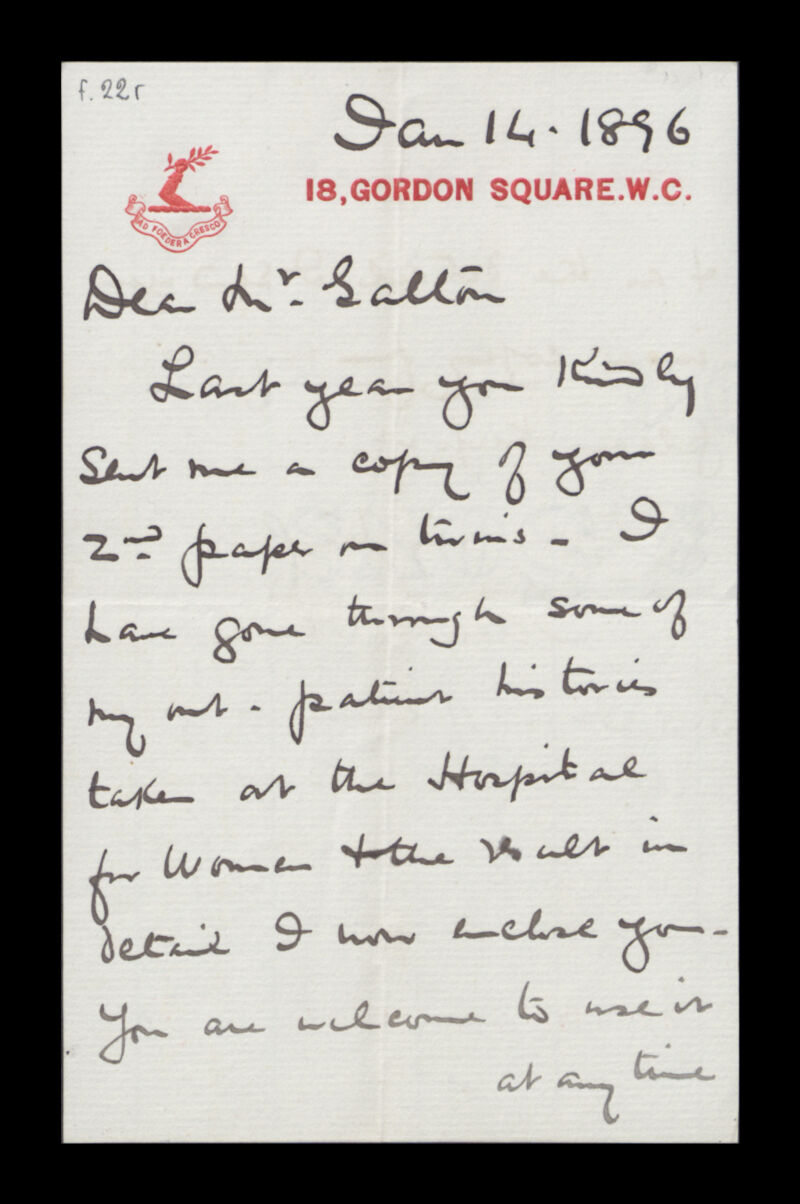 f. 22r
Jan 14. 1896
18, GORDON SQUARE. W.C.
AD FOEDERA CRESCO
Dear Mr. Galton
Last year you kindly
sent me a copy of your
2nd paper on twins - I
have gone through some of
my out-patient histories
taken at the Hospital
for Women & the result in
detail I now enclose you -
You are welcome to use it
at any time